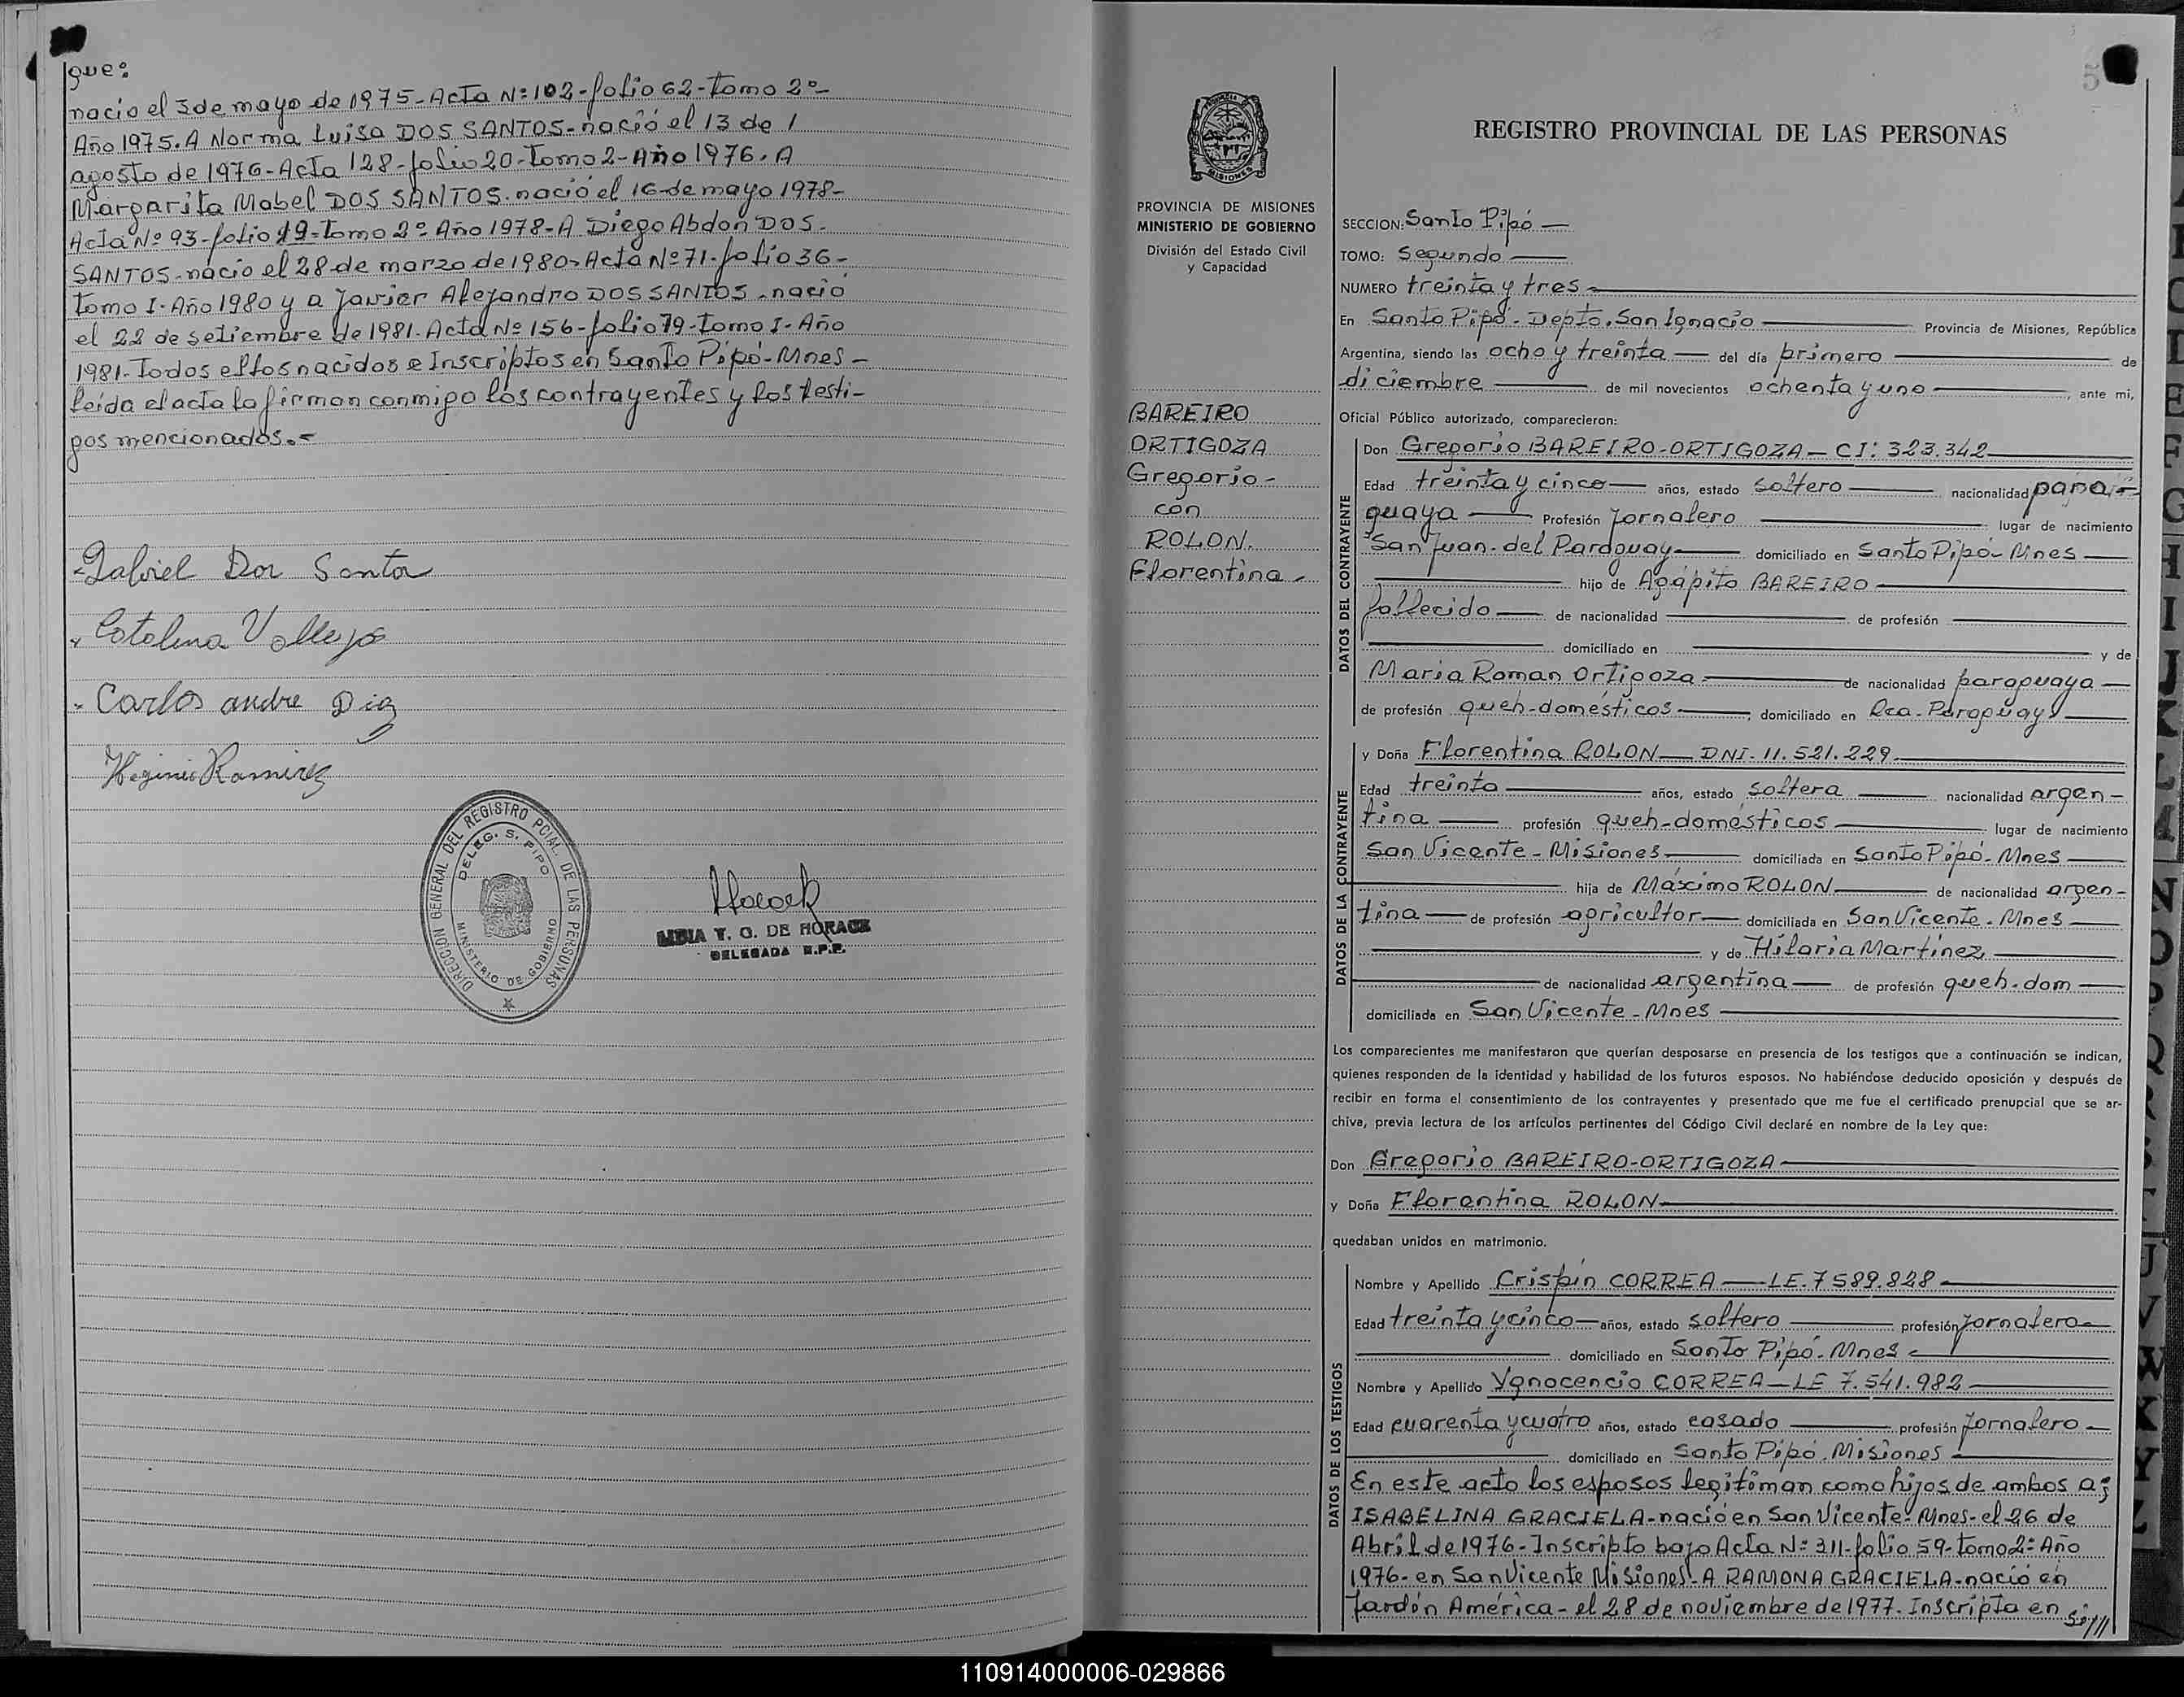 que:
nacio el 3 de mayo de 1975-Acta Nº 102-folio 62-Tomo 2º-
Año 1975. A Norma Luisa DOS SANTOS-nació el 13 de
agosto de 1976-Acta 128-folio 20-Tomo 2-Año 1976. A
Margarita Mabel DOS SANTOS. nació el 16 de mayo 1978-
Acta Nº 93-folio 19-Tomo 2º Año 1978-A Diego Abdon DOS-
SANTOS-nacio el 28 de marzo de 1980-Acta Nº 71-folio 36-
Tomo I-Año 1980 y a Javier Alejandro DOS SANTOS-nacio
el 22 de setiembre de 1981-Acta Nº 156-folio 79-Tomo I-Año
1981-Todos ellos nacidos e Inscriptos en Santo Pipó-Mnes-
leida el acta la firman conmigo los contrayentes y los testi-
gos mencionados.=
Gabriel Dos Santos
Catalina Vallejo
Carlos andre
Higinio Ramirez
DIRECCION GENERAL DEL REGISTRO PCIAL. DE LAS PERSONAS
DELEG. S. PIPO
MINISTERIO DE GOBIERNO
Y. G. DE HORACK
DELEGADA R.P.P.
5
PROVINCIA DE MISIONES
MINISTERIO DE GOBIERNO
División del Estado Civil
y Capacidad
BAREIRO
ORTIGOZA
Gregorio-
con
ROLON.
Florentina-
REGISTRO PROVINCIAL DE LAS PERSONAS
SECCION: Santo Pipó —
TOMO: Segundo —
NUMERO treinta y tres —
En Santo Pipó-Depto. San Ignacio — Provincia de Misiones, República
Argentina, siendo las ocho y treinta — del día primero — de
diciembre — de mil novecientos ochenta y uno —, ante mi,
Oficial Público autorizado, comparecieron:
DATOS DEL CONTRAYENTE
Don Gregorio BAREIRO-ORTIGOZA — CI: 323.342 —
Edad treinta y cinco — años, estado soltero — nacionalidad para-
guaya — Profesión Jornalero — lugar de nacimiento
San Juan-del Paraguay — domiciliado en Santo Pipó-Mnes —
— hijo de Agápito BAREIRO —
fallecido — de nacionalidad — de profesión —
— domiciliado en — y de
Maria Roman Ortigoza — de nacionalidad paraguaya —
de profesión queh-domésticos — domiciliado en Rca-Paraguay —
DATOS DE LA CONTRAYENTE
y Doña Florentina ROLON — DNI-11.521.229 —
Edad treinta — años, estado soltera — nacionalidad argen-
tina — profesión queh-domésticos — lugar de nacimiento
San Vicente-Misiones — domiciliada en Santo Pipó-Mnes —
— hija de Máximo ROLON — de nacionalidad argen-
tina — de profesión agricultor — domiciliada en San Vicente-Mnes —
— y de Hilaria Martínez —
— de nacionalidad argentina — de profesión queh-dom —
domiciliada en San Vicente-Mnes —
Los comparecientes me manifestaron que querían desposarse en presencia de los testigos que a continuación se indican,
quienes responden de la identidad y habilidad de los futuros esposos. No habiéndose deducido oposición y después de
recibir en forma el consentimiento de los contrayentes y presentado que me fue el certificado prenupcial que se ar-
chiva, previa lectura de los artículos pertinentes del Código Civil declaré en nombre de la Ley que:
Don Gregorio BAREIRO-ORTIGOZA —
y Doña Florentina ROLON —
quedaban unidos en matrimonio.
DATOS DE LOS TESTIGOS
Nombre y Apellido Crispín CORREA — LE. 7589.828 —
Edad treinta y cinco — años, estado soltero — profesión Jornalero —
— domiciliado en Santo Pipó-Mnes —
Nombre y Apellido Ygnocencio CORREA — LE 7.541.982 —
Edad cuarenta y cuatro años, estado casado — profesión Jornalero —
— domiciliado en Santo Pipó. Misiones —
En este acto los esposos legitiman como hijos de ambos a:
ISABELINA GRACIELA-nació en San Vicente-Mnes-el 26 de
Abril de 1976-Inscripto bajo Acta Nº 311-folio 59-Tomo 2º Año
1976-en San Vicente Misiones-A RAMONA GRACIELA-nacio en
Jardín América-el 28 de noviembre de 1977. Inscripta en
110914000006-029866